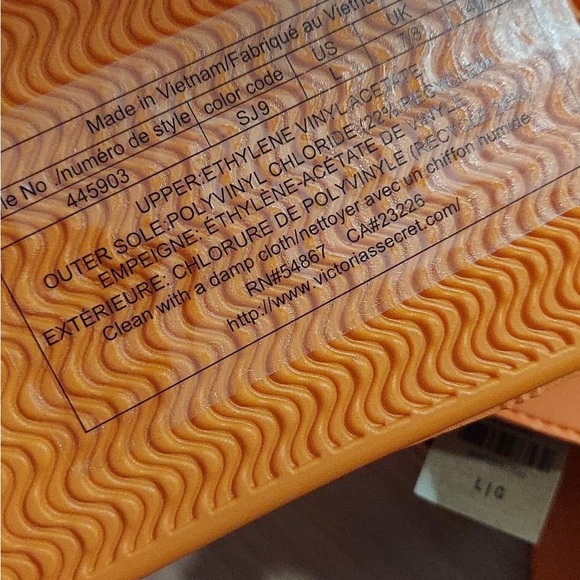 Made in Vietnam/Fabriqué au Vietnam
le No /numéro de style color code US UK
445903 SJ9 L 7/8
UPPER:ETHYLENE VINYL ACETATE
OUTER SOLE:POLYVINYL CHLORIDE (22% RECYCLED)
EMPEIGNE: ÉTHYLENE-ACÉTATE DE VINYLE
EXTÉRIEURE: CHLORURE DE POLYVINYLE (RECYCLÉ 22%)
Clean with a damp cloth/nettoyer avec un chiffon humide
RN#54867 CA#23226
http://www.victoriassecret.com/
L/G